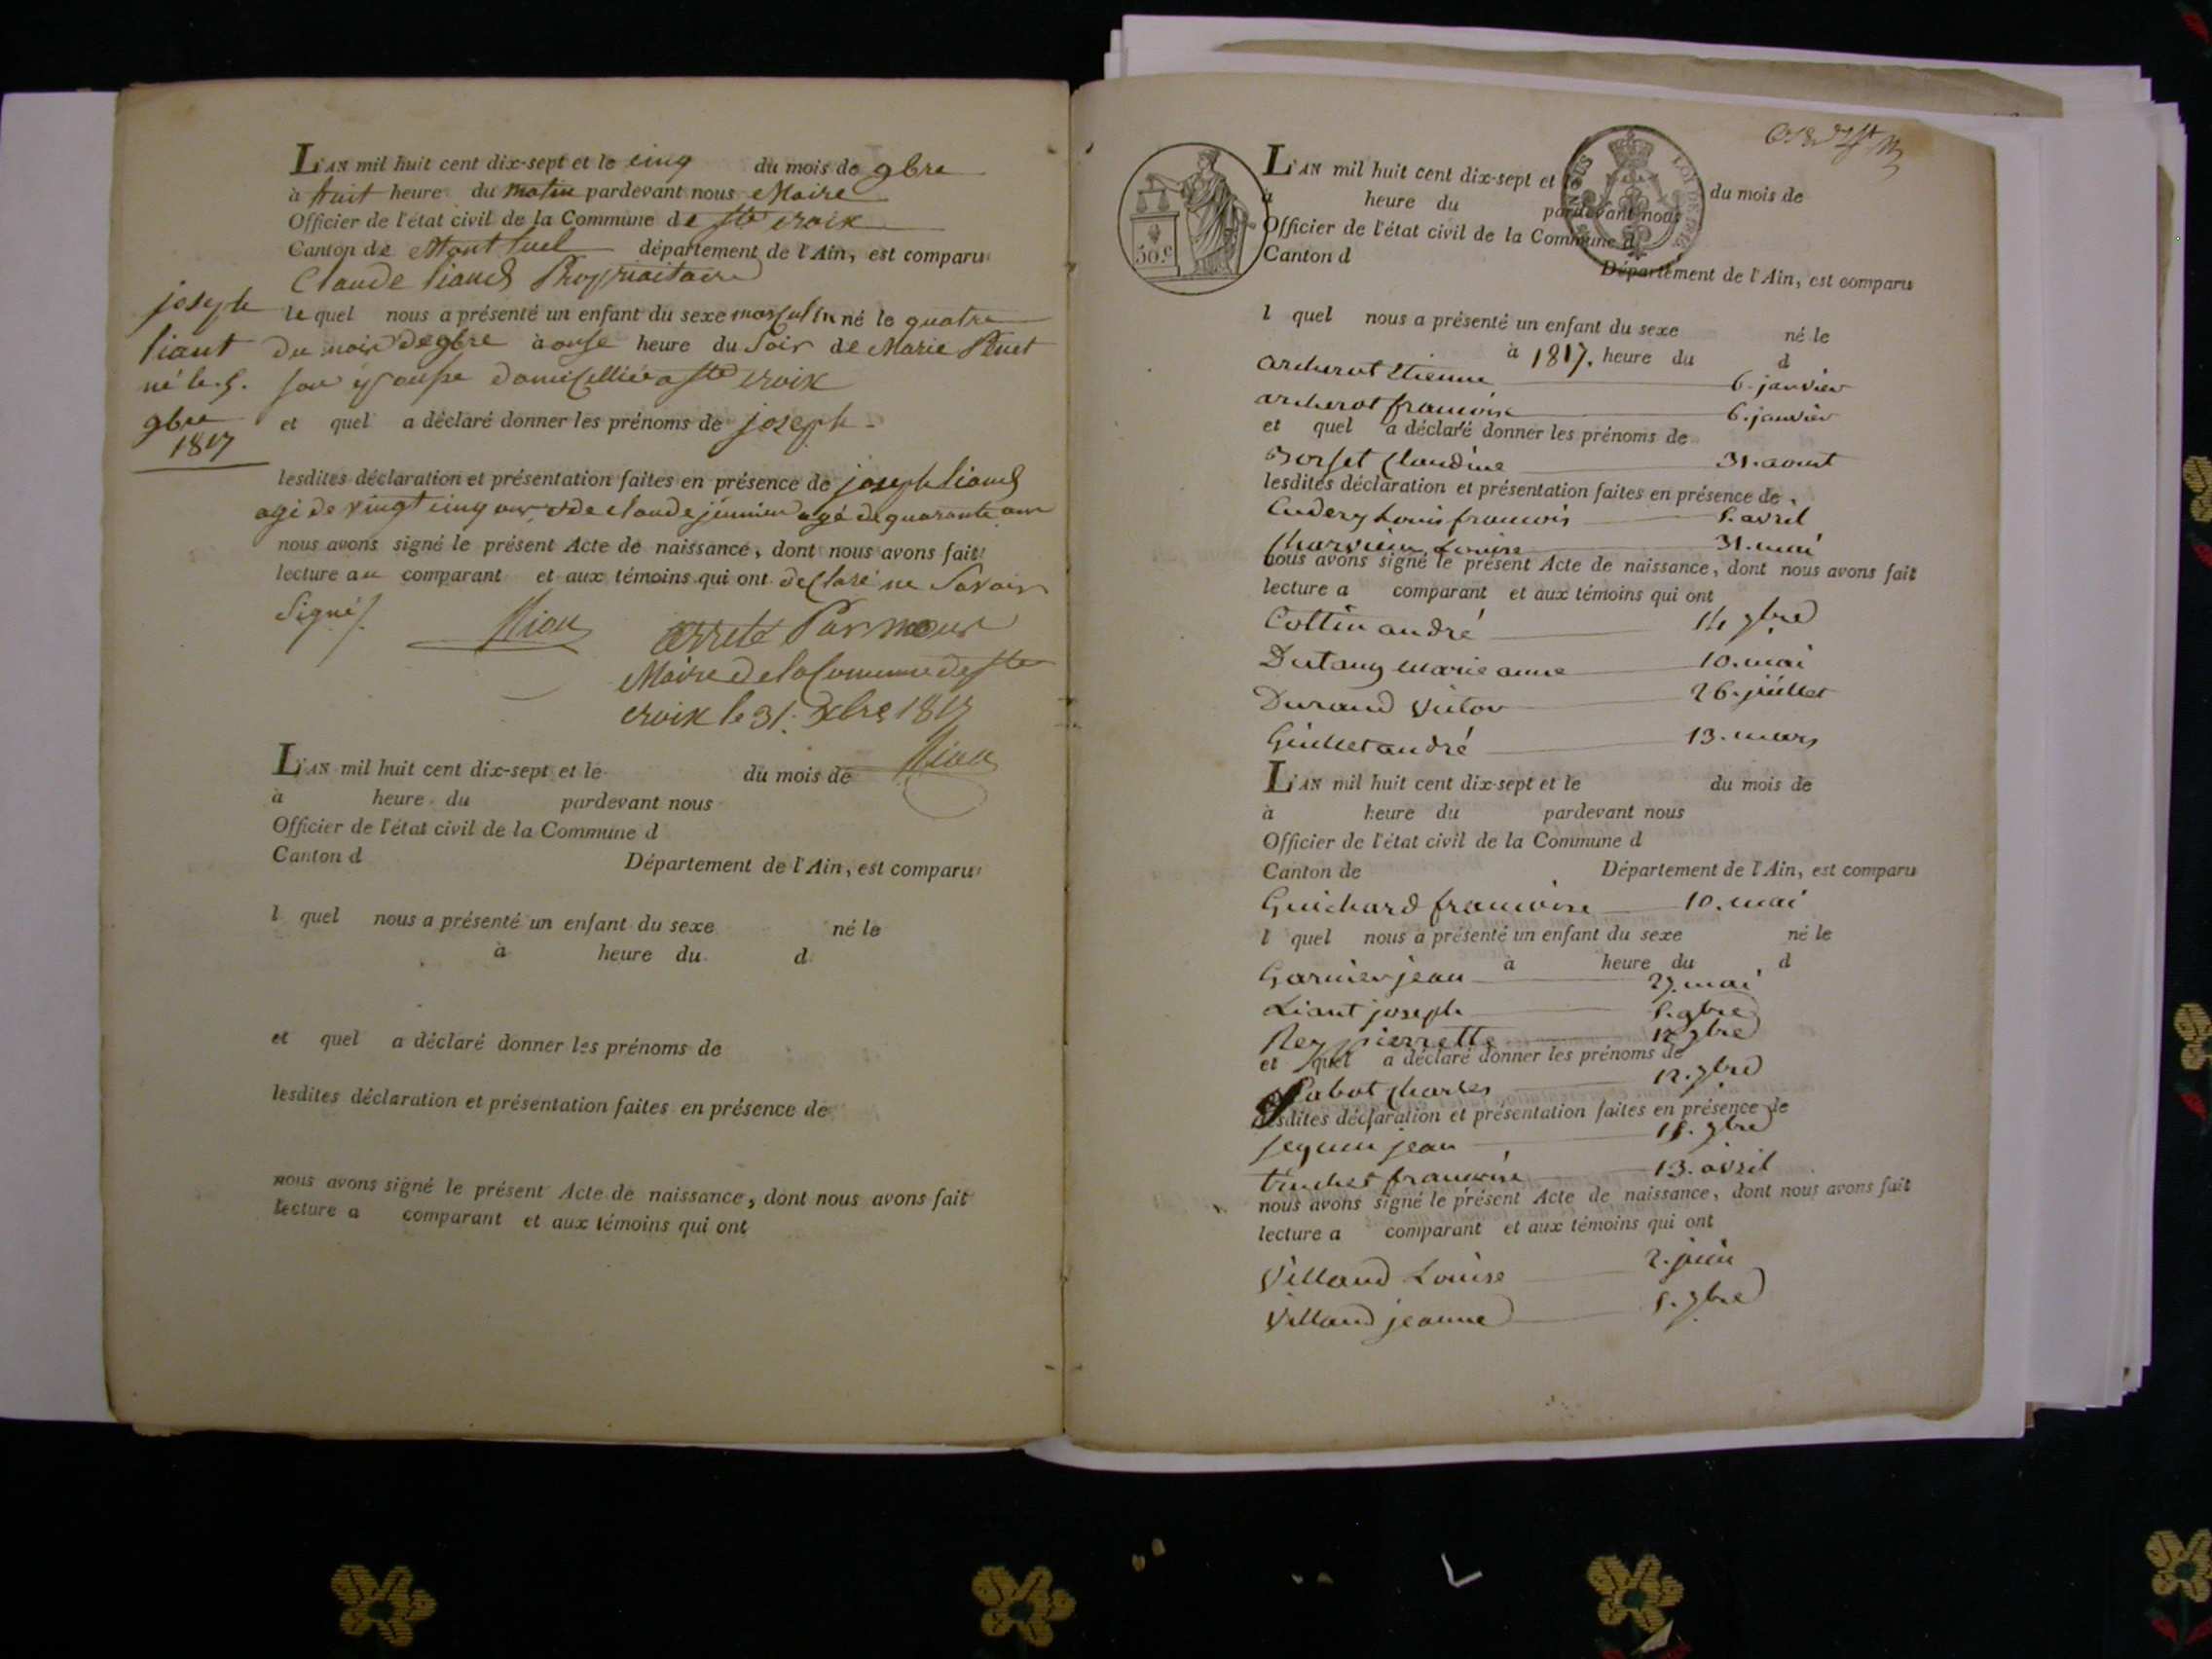 L'AN mil huit cent dix-sept et le cinq du mois de 9bre
à huit heure du matin pardevant nous Maire
Officier de l'état civil de la Commune de Ste croix
Canton de Montluel département de l'Ain, est comparu
Claude liaud Propriaitaire
le quel nous a présenté un enfant du sexe masculin né le quatre
du mois de 9bre à onse heure du Soir de Marie
son epouse domicilliée a Ste croix
et quel a déclaré donner les prénoms de joseph
joseph
liaut
né le 5.
9bre
1817
lesdites déclaration et présentation faites en présence de joseph liaud
agé de vingt cinq ans & de claude agé de quarante ans
nous avons signé le présent Acte de naissance, dont nous avons fait
lecture au comparant et aux témoins qui ont declaré ne Savoir
Signé
arreté Par nous
Maire de la Commune de Ste
croix le 31. Xbre 1817
L'AN mil huit cent dix-sept et le du mois de
à heure du pardevant nous
Officier de l'état civil de la Commune d
Canton d Département de l'Ain, est comparu
l quel nous a présenté un enfant du sexe né le
à heure du d
et quel a déclaré donner les prénoms de
lesdites déclaration et présentation faites en présence de
nous avons signé le présent Acte de naissance, dont nous avons fait
lecture a comparant et aux témoins qui ont
50.c
L'AN mil huit cent dix-sept et le du mois de
à heure du pardevant nous
Officier de l'état civil de la Commune d
Canton d Département de l'Ain, est comparu
l quel nous a présenté un enfant du sexe né le
à 1817. heure du d
archerot Etienne 6. janvier
archerot francoise 6. janvier
et quel a déclaré donner les prénoms de
Borset Claudine 31. aout
lesdites déclaration et présentation faites en présence de
Louis francois 5. avril
Louise 31. mai
nous avons signé le présent Acte de naissance, dont nous avons fait
lecture a comparant et aux témoins qui ont
Cottin andré 14 9bre
Dutang marie anne 10. mai
Durand Victor 26. juillet
Guillet andré 13. mars
L'AN mil huit cent dix-sept et le du mois de
à heure du pardevant nous
Officier de l'état civil de la Commune d
Canton de Département de l'Ain, est comparu
Guichard francoise 10. mai
l quel nous a présenté un enfant du sexe né le
à heure du d
Garnier jean 27. mai
Liaut joseph 5. 9bre
Rey pierrette 12 9bre
et quel a déclaré donner les prénoms de
Sabot Charles 12. 9bre
lesdites déclaration et présentation faites en présence de
seguin jean 15. 9bre
francoise 13. avril
nous avons signé le présent Acte de naissance, dont nous avons fait
lecture a comparant et aux témoins qui ont
Villand Louise 2. juin
Villand jeanne 5. 9bre